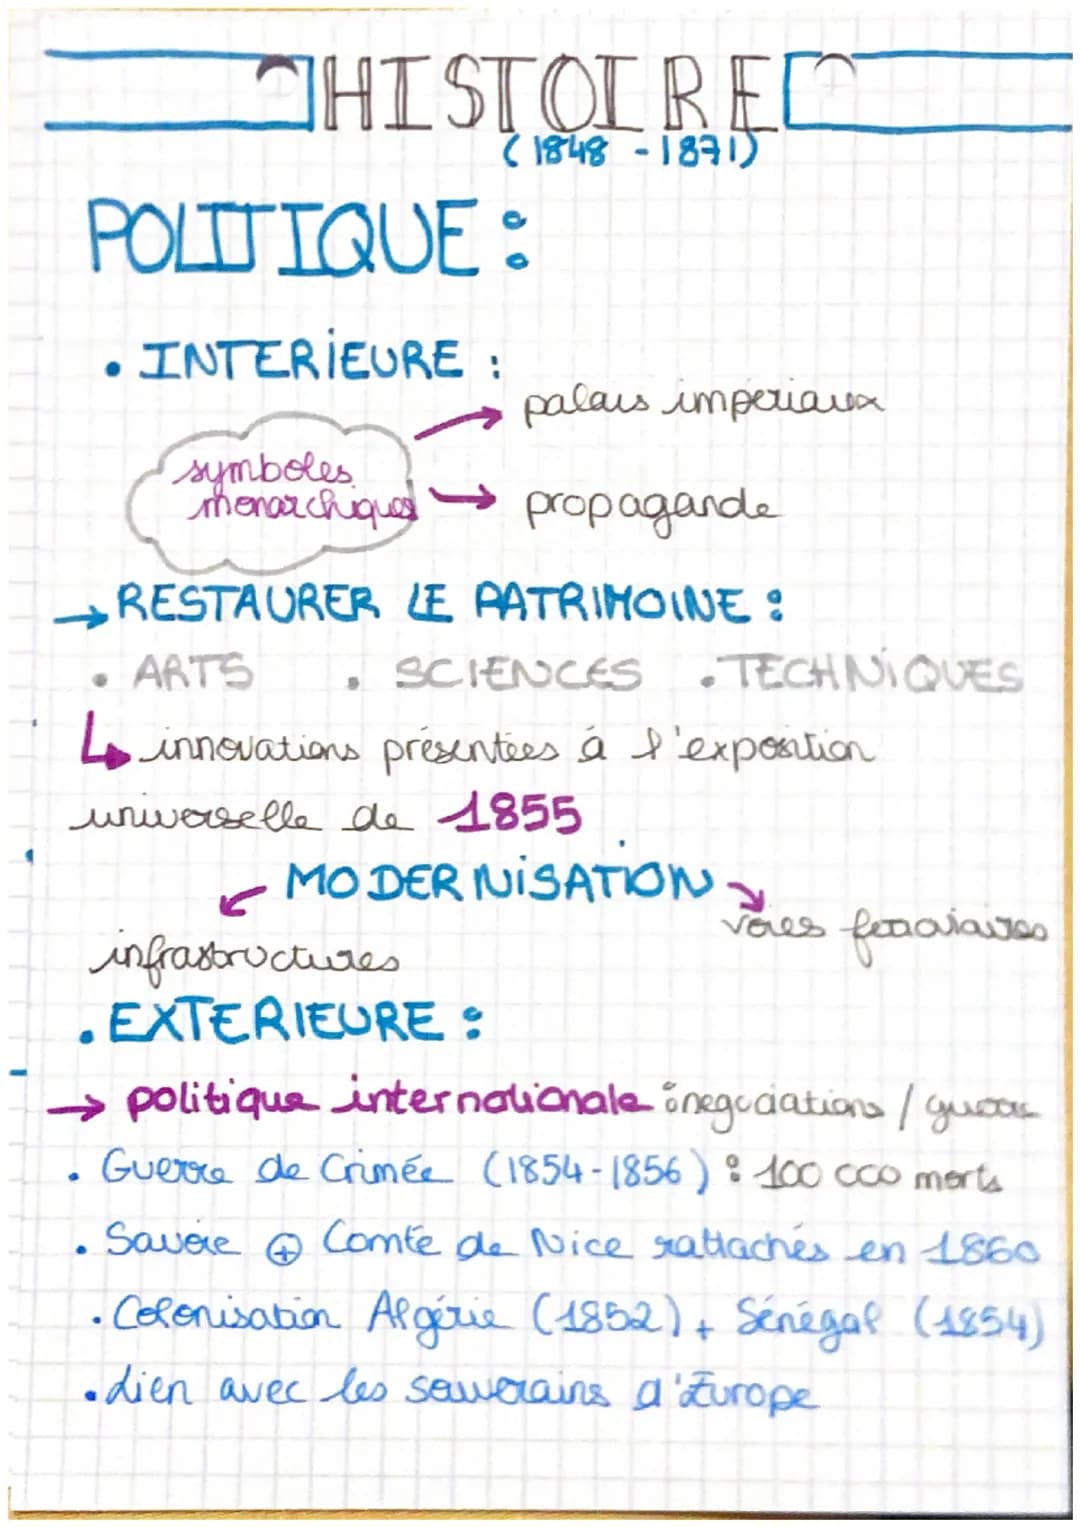 HISTOIRE
(1848 - 1871)
POLITIQUE :
• INTERIEURE :
palais impériaux
symboles
monarchiques
→ propagande
→ RESTAURER LE PATRIMOINE :
• ARTS • SCIENCES • TECHNIQUES
↳ innovations présentées à l'exposition
universelle de 1855
MODERNISATION
voies ferroviaires
infrastructures
• EXTERIEURE :
→ politique internationale : négociations / guerres
• Guerre de Crimée (1854-1856) : 100 000 morts
• Savoie ⊕ Comté de Nice rattachés en 1860
• Colonisation Algérie (1852) + Sénégal (1854)
• Lien avec les souverains d'Europe